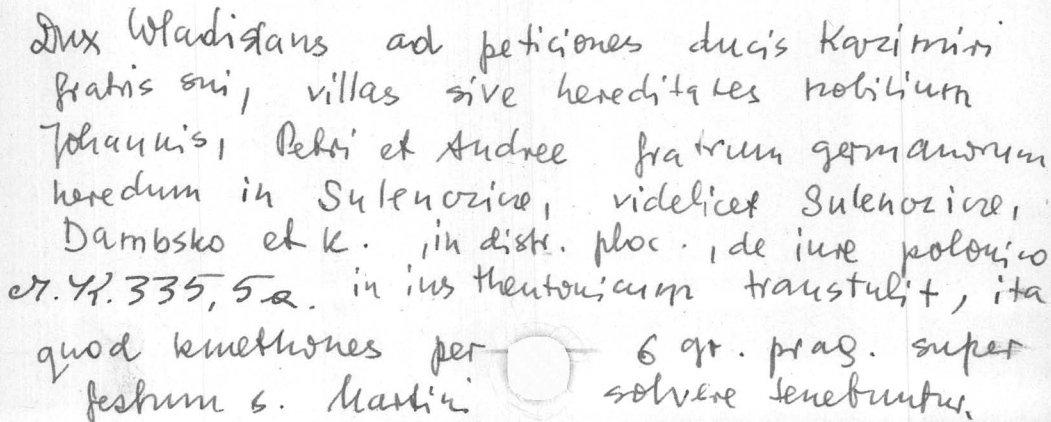 Dux Wladislaus ad peticiones ducis Kazimiri
fratris sui, villas sive hereditates nobilium
Johannis, Petri et Andree fratrum germanorum
heredum in Sulenozice, videlicet Sulenozice,
Dambsko et K. , in distr. ploc. , de iure polonico
M.K. 335, 5a. in ius theutonicum transtulit, ita
quod kmethones per 6 gr. prag. super
festum s. Martini solvere tenebuntur.